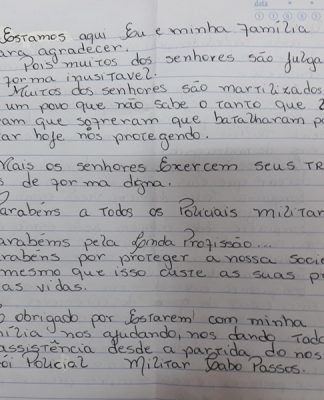 data
Estamos aqui Eu e minha família
ara agradecer.
Pois muitos dos senhores são julga
forma inusitavel.
Muitos dos senhores são martilizados
um povo que não sabe o tanto que
am que sofreram que batalharam p
ar hoje nos protegendo.
Mais os senhores Exercem seus TR
s de forma digna.
arabéns a Todos os Policiais militar
arabéms pela Linda Profissão...
rabéns por proteger a nossa socie
mesmo que isso custe as suas p
as vidas.
obrigado por Estarem com minha
mília nos ajudando, nos dando Toda
assistência desde a partida do nos
ói Policial Militar Cabo Passos.